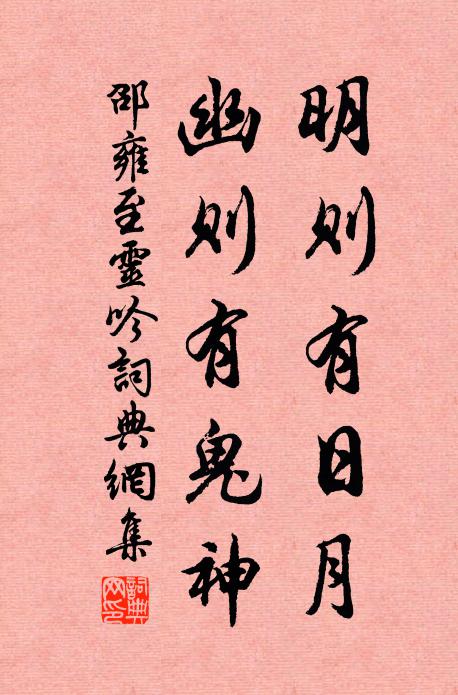 明则有日月
幽则有鬼神
邵雍至靈吟詞典網集
詞典網印